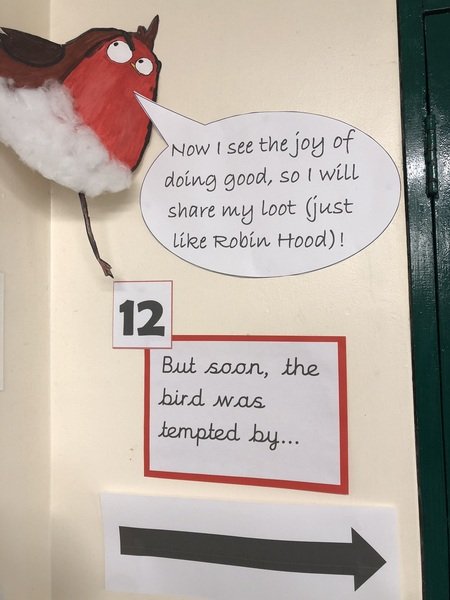 Now I see the joy of
doing good, so I will
share my loot (just
like Robin Hood)!
12
But soon, the
bird was
tempted by...